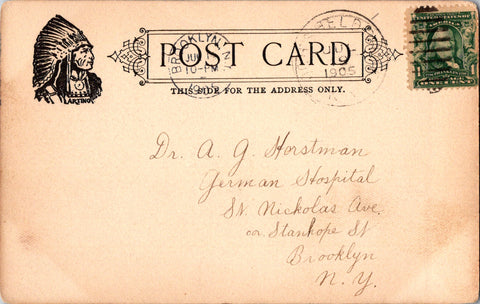 POST CARD
THIS SIDE FOR THE ADDRESS ONLY.
BROOKLYN
10-PM
1905
Dr. A. G. Horstman
German Hospital
St. Nickolas Ave.
cor Stanhope St
Brooklyn
N. Y.